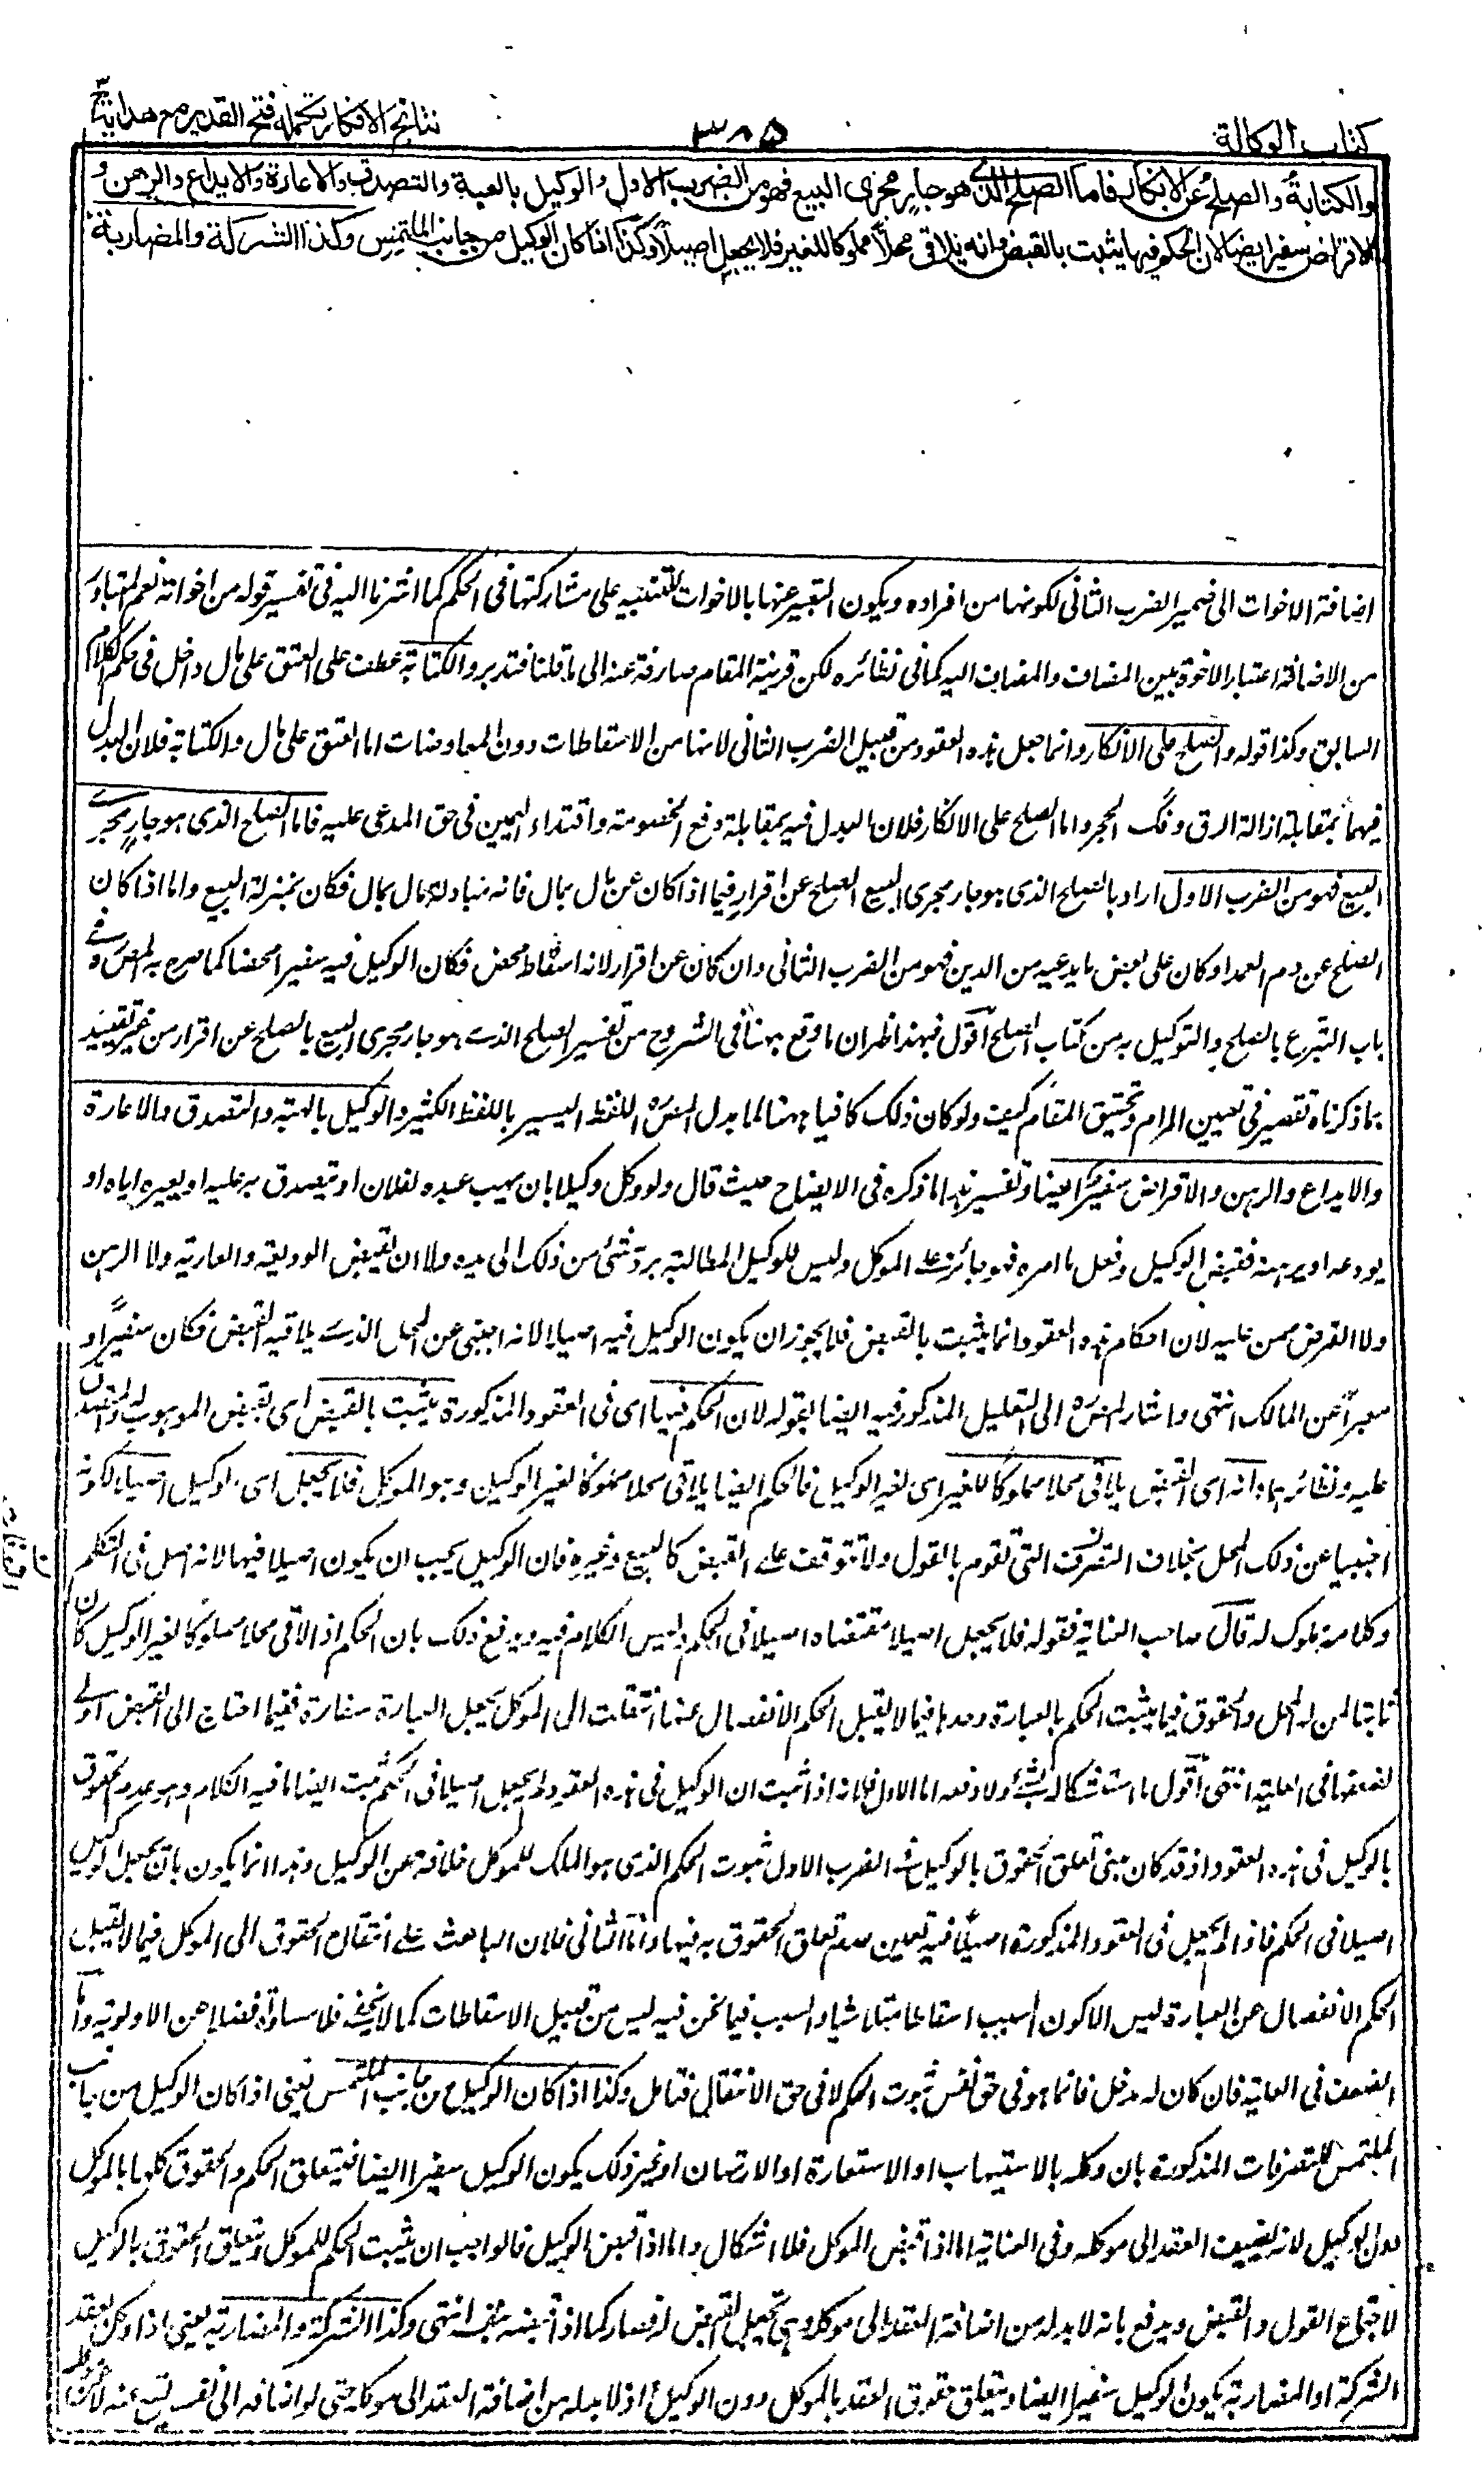 كتاب الوكالة
٣٨٥
نتائج الافكار تكملة فتح القدير مع هداية ج ٣
والكتابة والصلح عن الانكار فاما الصلح الذي هو جار مجرى البيع فهو من الضرب الاول والوكيل بالهبة والتصدق والاعارة والايداع والرهن و
الاقراض سفير ايضا لان الحكم فيها يثبت بالقبض وانه يلاقي محلا مملوكا للغير فلا يجعل اصيلا وكذا اذا كان الوكيل من جانب الملتمس وكذا الشركة والمضاربة
اضافة الاخوات الى ضمير الضرب الثانى لكونها من افراده ويكون التعبير عنها بالاخوات للتنبيه على مشاركتها فى الحكم كما اشرنا اليه فى تفسير قوله من اخواته نعم المتبادر
من الاضافة اعتبار الاخوة بين المضاف والمضاف اليه كما فى نظائره لكن قرينة المقام صارفة عنه الى ما قلنا فتدبر والكتابة عطف على العتق على مال داخل فى حكم الكلام
السابق وكذا قوله والصلح على الانكار وانما جعل هذه العقود من قبيل الضرب الثانى لانها من الاسقاطات دون المعاوضات اما العتق على مال والكتابة فلان البدل
فيهما بمقابلة ازالة الرق وفك الحجر واما الصلح على الانكار فلان البدل فيه بمقابلة دفع الخصومة وافتداء اليمين فى حق المدعى عليه فاما الصلح الذى هو جار مجرى
البيع فهو من الضرب الاول اراد بالصلح الذى هو جار مجرى البيع الصلح عن اقرار فيما اذا كان عن مال بمال فانه مبادلة مال بمال فكان بمنزلة البيع واما اذا كان
الصلح عن دم العمد او كان على بعض ما يدعيه من الدين فهو من الضرب الثانى وان كان عن اقرار لانه اسقاط محض فكان الوكيل فيه سفيرا محضا كما صرح به المصره فى
باب التبرع بالصلح والتوكيل به من كتاب الصلح اقول فبهذا ظهر ان ما وقع ههنا فى الشروح من تفسير الصلح الذى هو جار مجرى البيع بالصلح عن اقرار من غير تقييد
بما ذكرناه تقصير فى تعيين المرام وتحقيق المقام كيف ولو كان ذلك كافيا ههنا لما بدل المصره اللفظ اليسير باللفظ الكثير والوكيل بالهبة والتصدق والاعارة
والايداع والرهن والاقراض سفير ايضا وتفسير هذا ما ذكره فى الايضاح حيث قال ولو وكل وكيلا بان يهب عبده لفلان او يتصدق به عليه او يعيره اياه او
يودعه او يرهنه فقبض الوكيل وفعل ما امره فهو جائز على الموكل وليس للوكيل المطالبة برد شئ من ذلك الى يده ولا ان يقبض الوديعة والعارية ولا الرهن
ولا القرض ممن عليه لان احكام هذه العقود انما يثبت بالقبض فلا يجوز ان يكون الوكيل فيه اصيلا لانه اجنبى عن المحل الذى يلاقيه القبض فكان سفيرا و
معبرا عن المالك انتهى واشار المصره الى التعليل المذكور فيه ايضا بقوله لان الحكم فيها اى فى العقود المذكورة يثبت بالقبض اى بقبض الموهوب له والمتصدق
عليه ونظائرهما وانه اى القبض يلاقى محلا مملوكا للغير اى لغير الوكيل فالحكم ايضا يلاقى محلا مملوكا لغير الوكيل وهو الموكل فلا يجعل اى الوكيل اصيلا لكونه
اجنبيا عن ذلك المحل بخلاف التصرفات التى تقوم بالقول ولا تتوقف على القبض كالبيع وغيره فان الوكيل يجب ان يكون اصيلا فيها لانه اصل فى التكلم
وكلامه مملوك له قال صاحب العناية فقوله فلا يجعل اصيلا مقتضاه اصيلا فى الحكم وليس الكلام فيه ويدفع ذلك بان الحكم اذا لاقى محلا مملوكا لغير الوكيل كان
ثابتا لمن له المحل والحقوق فيما يثبت الحكم بالعبارة وحدها فيما لا يقبل الحكم الانفصال عنها انتقلت الى الموكل بجعل العبارة سفارة ففيما احتاج الى القبض اولى
لضعفها فى العلية انتهى اقول ما استشكاله بشئ ولا دفعه اما الاول فلانه اذا ثبت ان الوكيل فى هذه العقود لم يجعل اصيلا فى الحكم ثبت ايضا ما فيه الكلام وهو عدم تعلق الحقوق
بالوكيل فى هذه العقود اذ قد كان مبنى تعلق الحقوق بالوكيل فى الضرب الاول ثبوت الحكم الذى هو الملك للموكل خلافة عن الوكيل وهذا انما يكون بان يجعل الوكيل
اصيلا فى الحكم فاذا لم يجعل فى العقود المذكورة اصيلا فيه تعين عدم تعلق الحقوق به فيها واما الثانى فلان الباعث على انتقال الحقوق الى الموكل فيما لا يقبل
الحكم الانفصال عن العبارة ليس الا كون السبب اسقاطا متلاشيا والسبب فيما نحن فيه ليس من قبيل الاسقاطات كما لا يخفى فلا مساواة فضلا عن الاولوية واما
الضعف فى العلية فان كان له مدخل فانما هو فى حق نفس ثبوت الحكم لا فى حق الانتقال فتامل وكذا اذا كان الوكيل من جانب الملتمس يعنى اذا كان الوكيل من جانب
الملتمس للتصرفات المذكورة بان وكله بالاستيهاب او الاستعارة او الارتهان او غير ذلك يكون الوكيل سفيرا ايضا فيتعلق الحكم والحقوق كلها بالموكل
دون الوكيل لانه يضيف العقد الى موكله وفى العناية اما اذا قبض الموكل فلا اشكال واما اذا قبض الوكيل فالواجب ان يثبت الحكم للموكل وتتعلق الحقوق بالوكيل
لاجتماع القول والقبض ويدفع بانه لا بد له من اضافة العقد الى موكله وهى تجعل القبض له فصار كما اذا قبضه بنفسه انتهى وكذا الشركة والمضاربة يعنى اذا وكل بعقد
الشركة او المضاربة يكون الوكيل سفيرا ايضا ويتعلق حقوق العقد بالموكل دون الوكيل اذ لا بد له من اضافة العقد الى موكله حتى لو اضافه الى نفسه يقع عنه